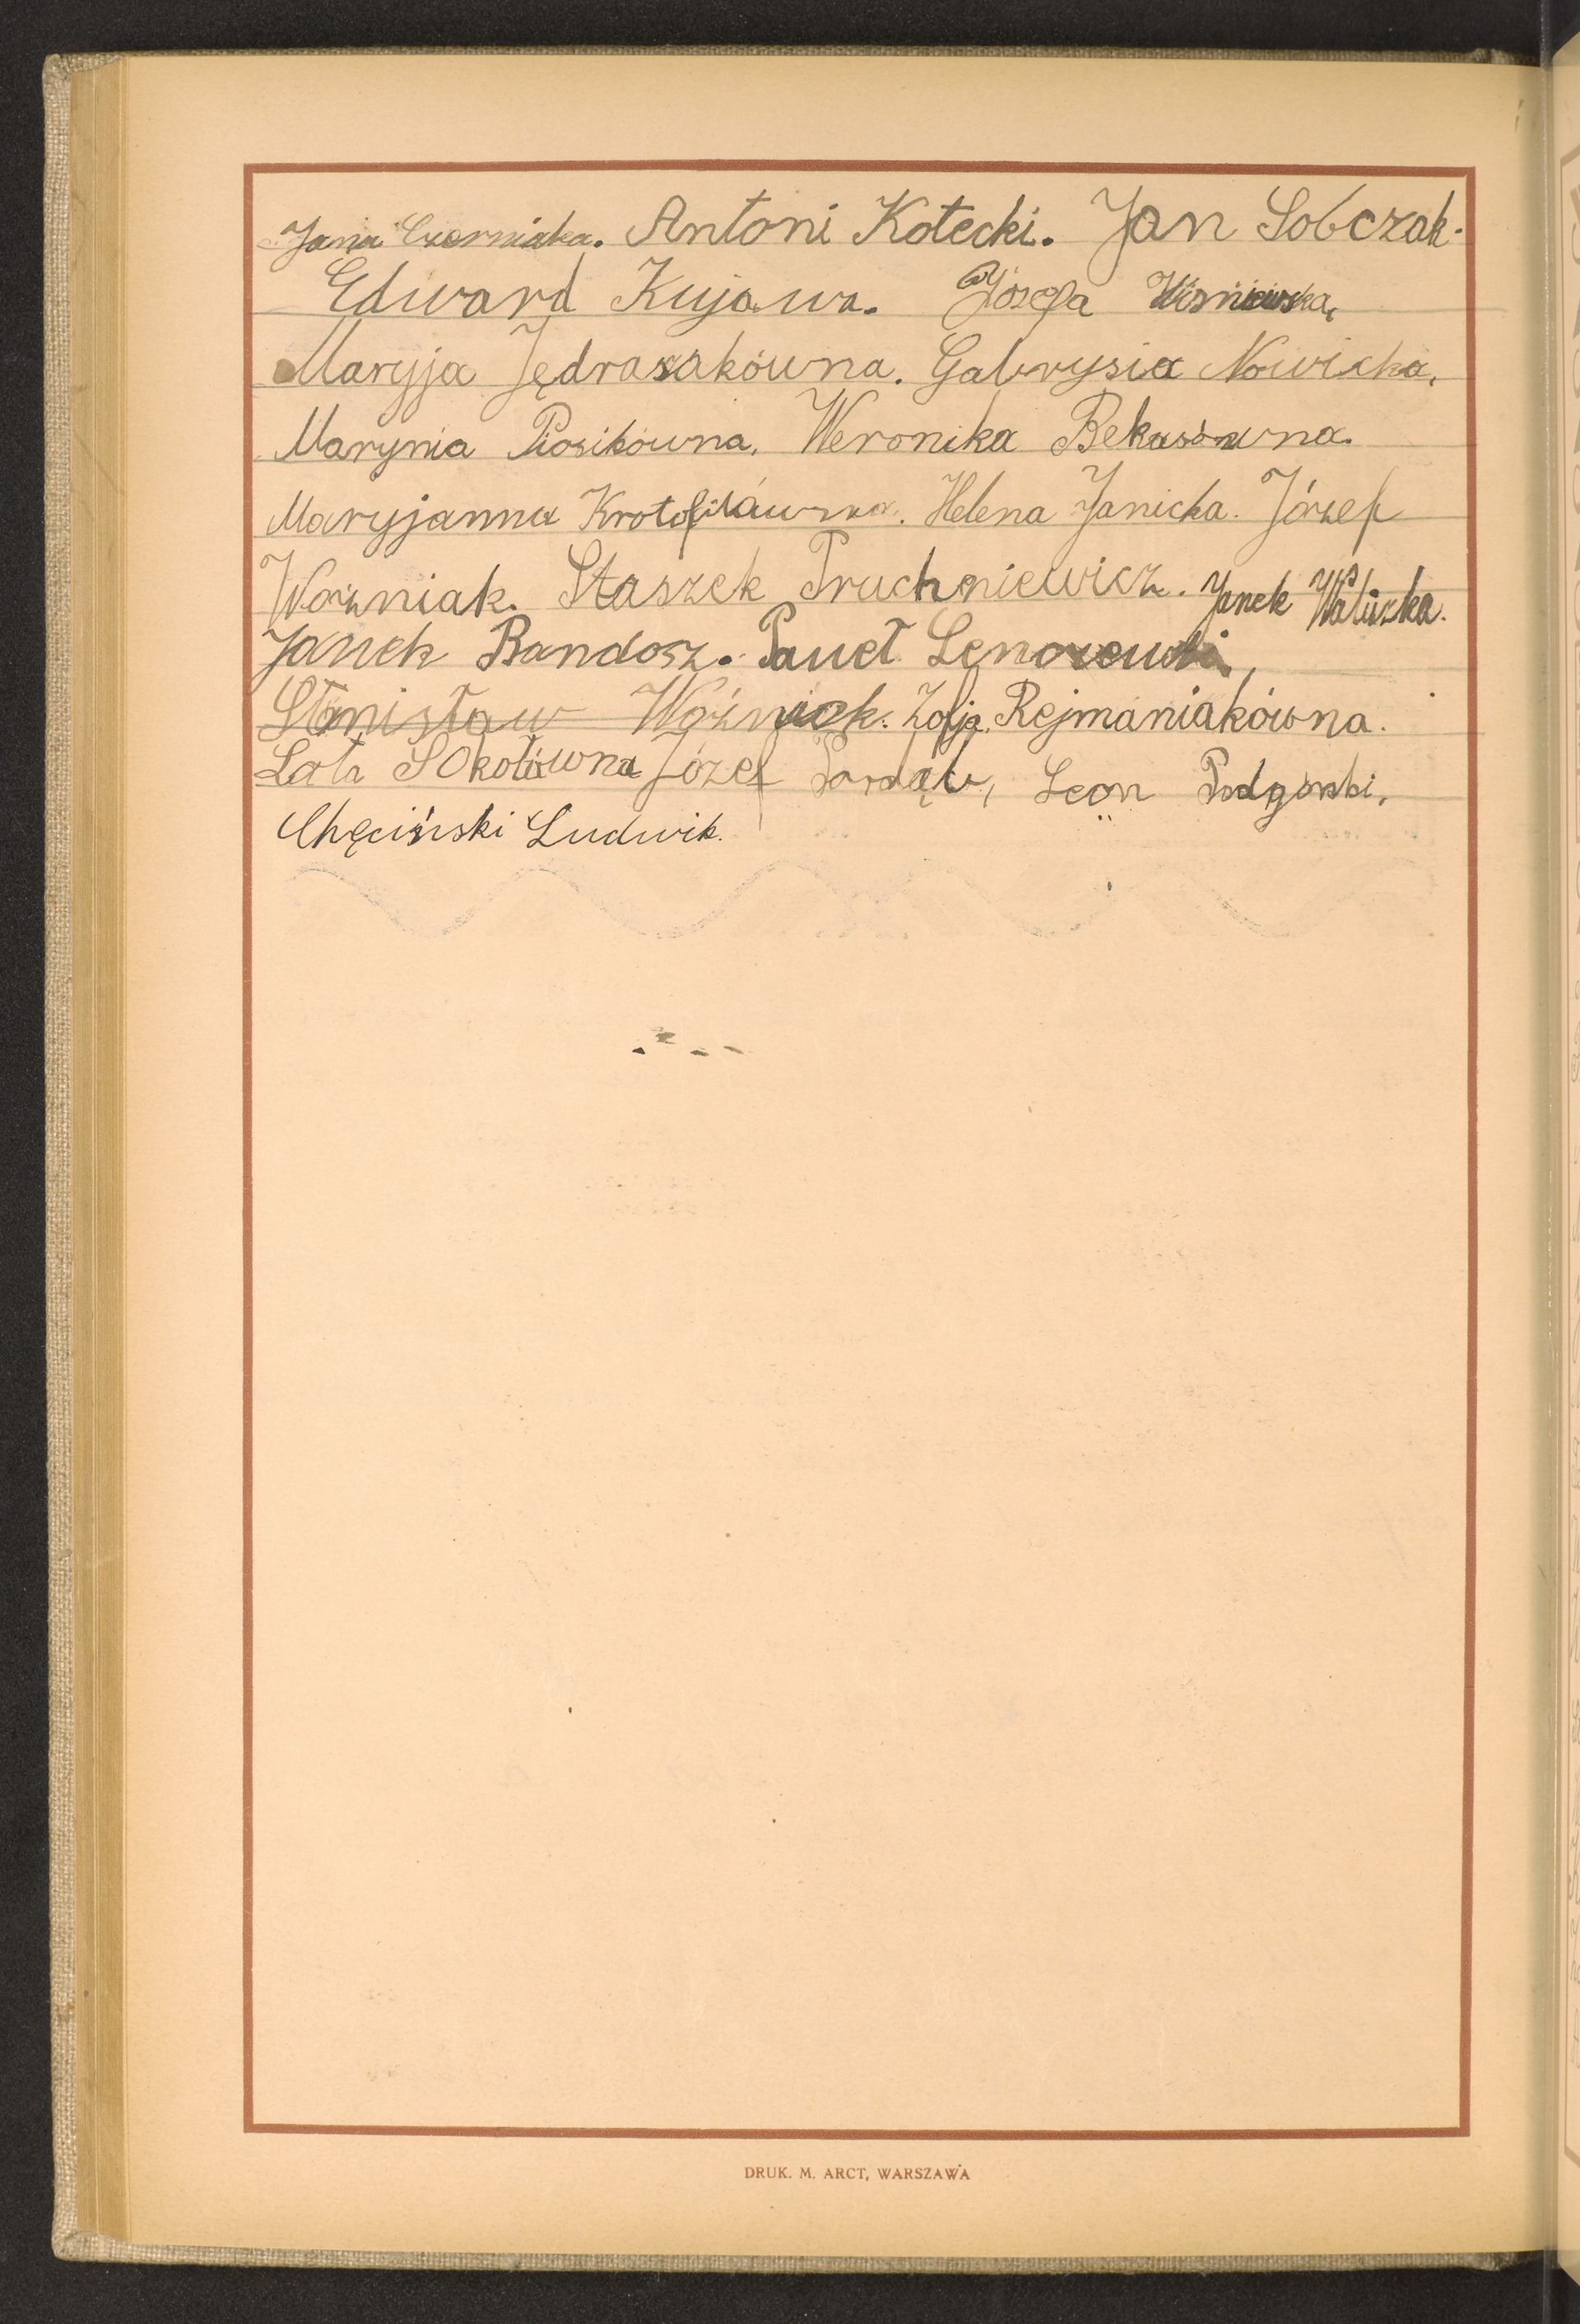 Jana Czerniaka. Antoni Kotecki. Jan Sobczak.
Edward Kujawa. Józefa Wisniewska,
Maryja Jędraszakówna. Gabrysia Nowicka,
Marynia Piosikówna, Weronika Bekasówna.
Maryjanna Helena Janicka. Józef
Wozniak. Staszek Pruchniewicz. Janek Waliszka.
Janek Bandosz. Paweł
Stanisław Woźniak. Zofja Rejmaniakówna.
Sokołówna Józef Leon Podgórski,
Chęciński Ludwik.
DRUK. M. ARCT, WARSZAWA